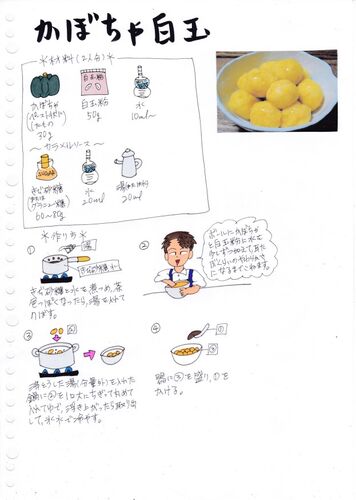 かぼちゃ白玉
＊材料(2人分)＊
かぼちゃ
(ペースト状に
したもの)
30g
白玉粉
白玉粉
50g
水
10ml〜
〜カラメルソース〜
SUGAR
きび砂糖
または
グラニュー糖
60〜80g
水
20ml
湯
20ml
＊作り方＊
①
湯
きび砂糖 水
きび砂糖と水を煮つめ、茶
色っぽくなったら、湯を入れて
のばす。
②
ボールにかぼちゃ
と白玉粉に水を
少しずつ加えて耳た
ぶくらいのやわらかさ
になるまでこねます。
③
②
沸とうした湯(分量外)を入れた
鍋に②を1口大にちぎって丸めて
入れてゆで、浮き上がったら取り出
して、氷水で冷やす。
④
①
③
器に③を盛り、①を
かける。